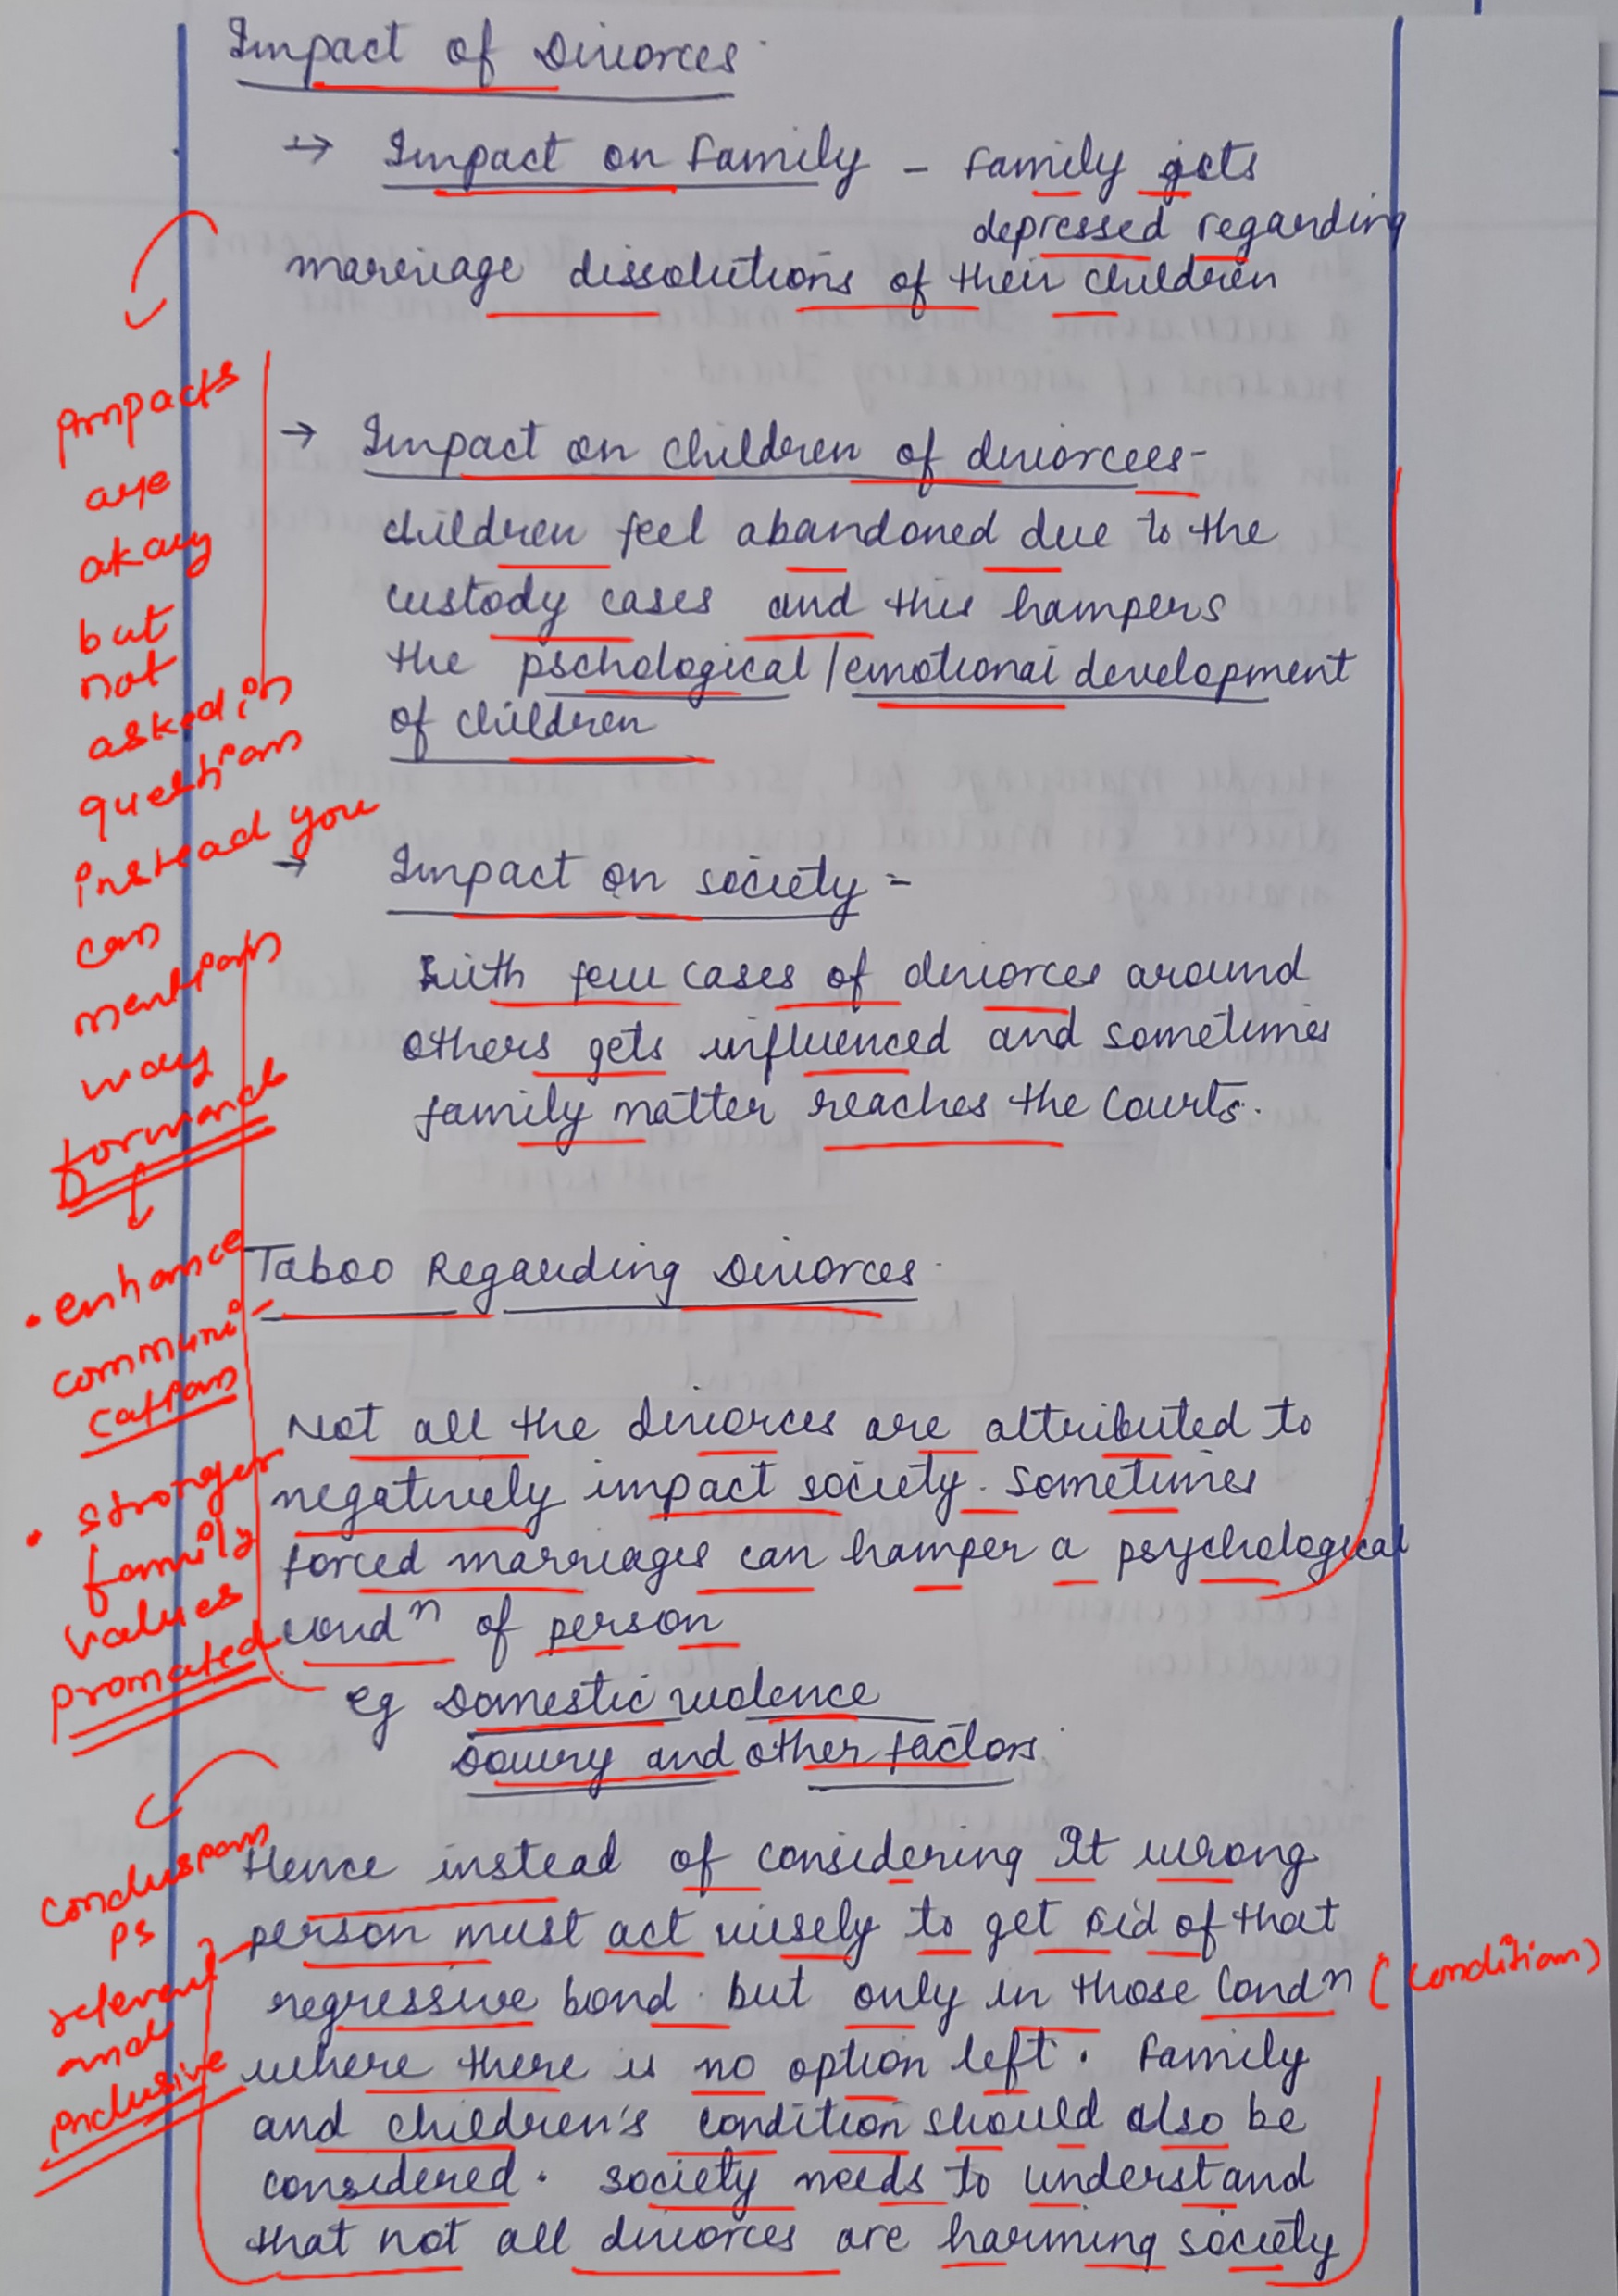 Impact of Divorces
→ Impact on Family - Family gets
depressed regarding
marriage dissolutions of their children
→ Impact on children of divorcees-
children feel abandoned due to the
custody cases and this hampers
the pschological/emotional development
of children
→ Impact on society -
with few cases of divorces around
others gets influenced and sometimes
family matter reaches the Courts.
Taboo Regarding Divorces
Not all the divorces are attributed to
negatively impact society. Sometimes
forced marriages can hamper a psychological
condⁿ of person
eg Domestic violence
Dowry and other factors.
Hence instead of considering It wrong
person must act wisely to get rid of that
regressive bond. but only in those Condⁿ (condition)
where there is no option left. Family
and children's condition should also be
considered. society needs to understand
that not all divorces are harming society
Impacts
are
okay
but
not
asked in
question
instead you
can
mention
way
forward
↓
• enhance
communi-
cation
• stronger
family
values
promoted
Conclusion
is
relevant
and
inclusive